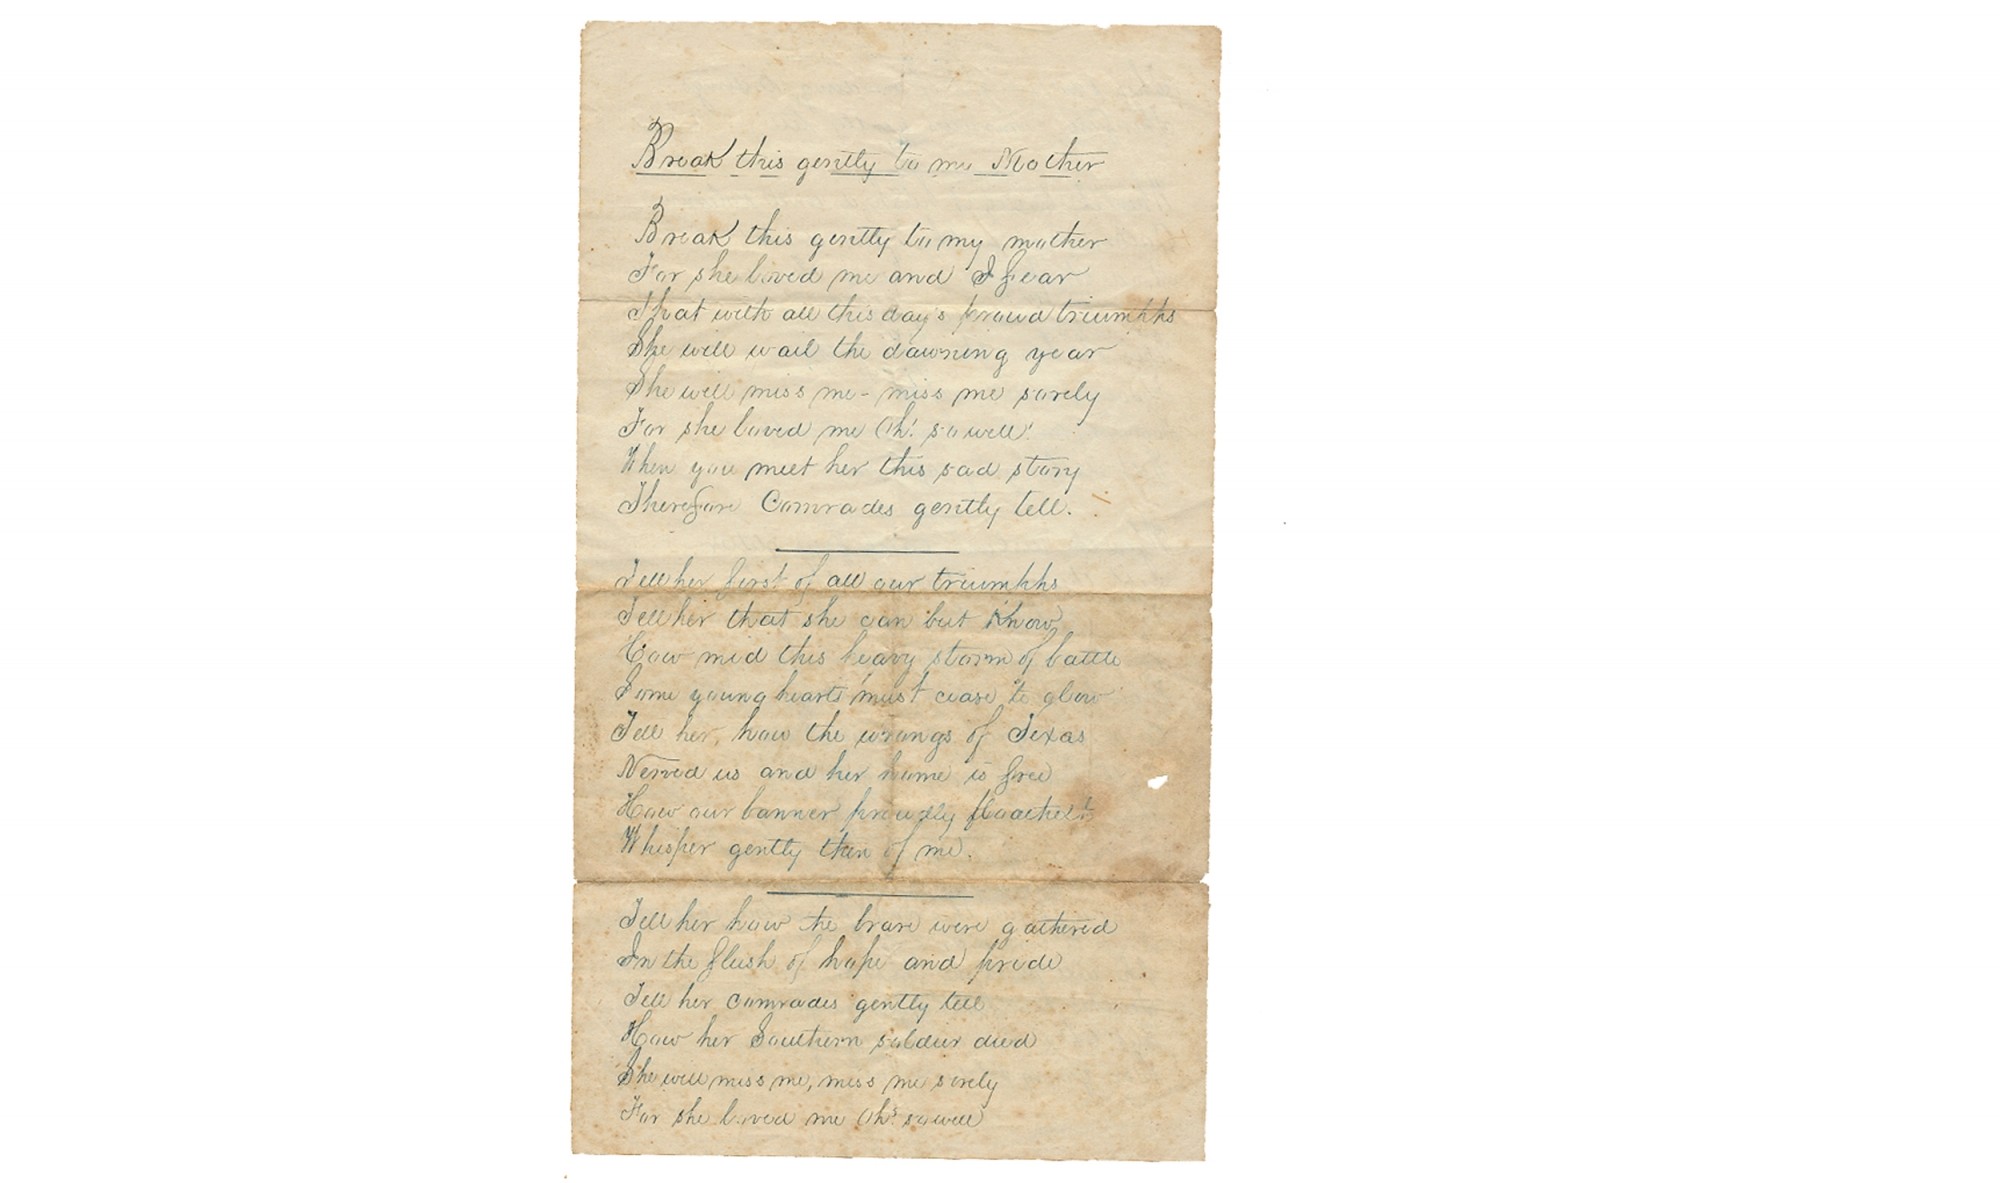 Break this gently to my Mother
Break this gently to my mother
For she loved me and I fear
That with all this day's proud triumphs
She will wail the dawning year
She will miss me - miss me sorely
For she loved me Oh! so well!
When you meet her this sad story
Therefore Comrades gently tell.
Tell her first of all our triumphs
Tell her that she can but Know
How mid this heavy storm of battle
Some young hearts must cease to glow
Tell her, how the wrongs of Texas
Nerved us and her home is free
How our banner proudly
Whisper gently then of me.
Tell her how the brave were gathered
In the flush of hope and pride
Tell her comrades gently tell
How her Southern soldier died
She will miss me, miss me sorely
For she loved me Oh! so well